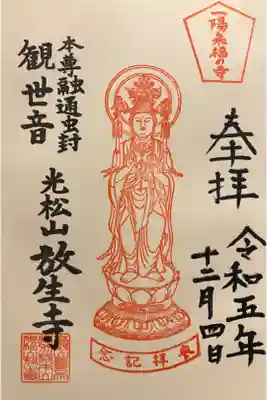 一陽来福の寺
奉拝
令和五年
十二月四日
参拝記念
本尊融通虫封
観世音
光松山
放生寺